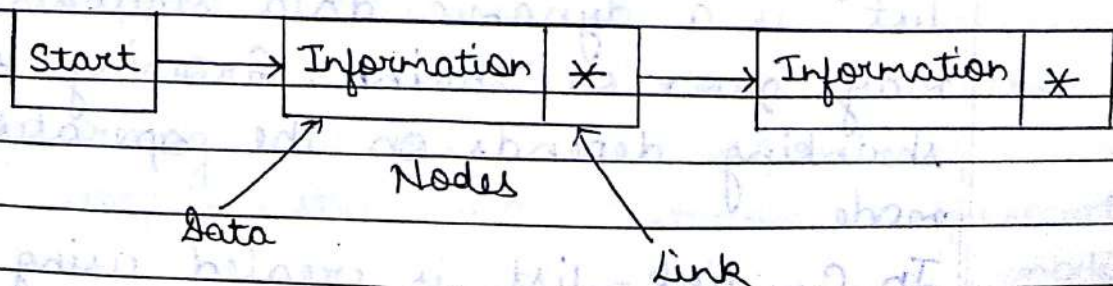 Start Information * Information *
Nodes
Data
Link